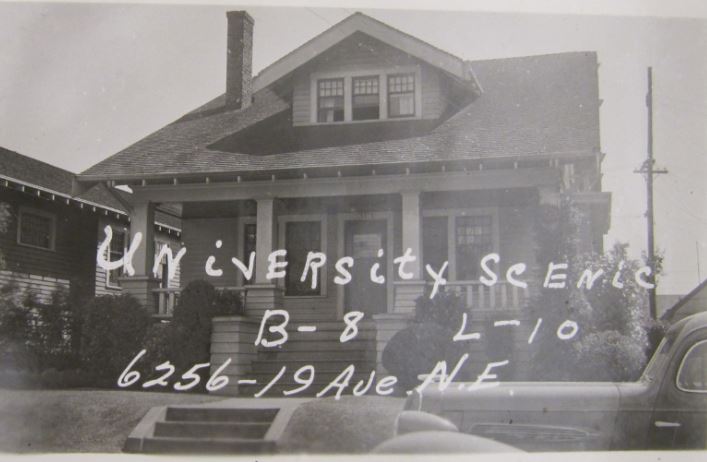 UNiVERSity SCENiC
B-8 L-10
6256-19 Ave. N.E.